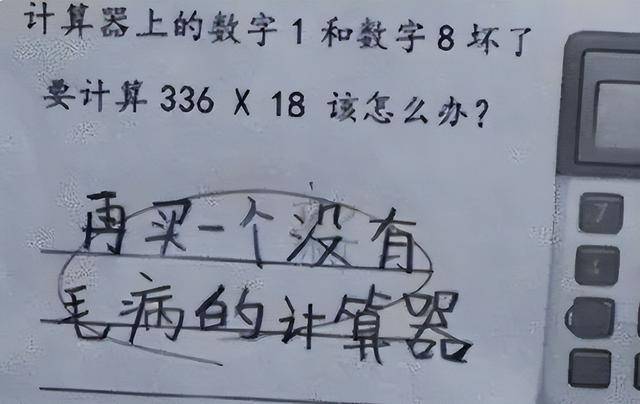 计算器上的数字1和数字8坏了
要计算336 X 18 该怎么办?
再买一个没有
毛病的计算器
7